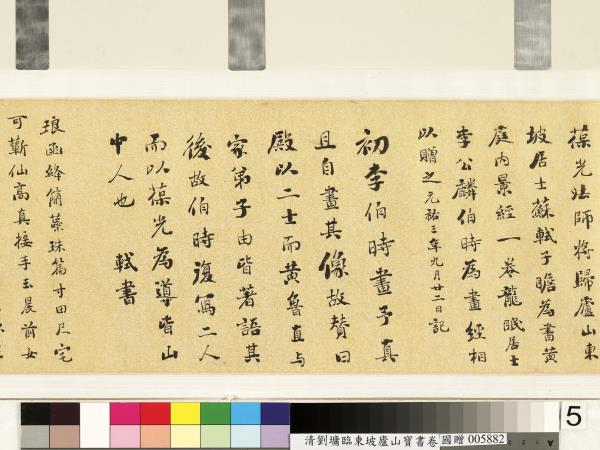 葆光法師將歸廬山東
坡居士蘇軾子瞻為書黃
庭内景經一卷龍眠居士
李公麟伯時為畫經相
以贈之元祐三年九月廿二日記
初李伯時畫予真
且自畫其像故贊曰
殿以二士而黃魯直与
家弟子由皆著語其
後故伯時復寫二人
而以葆光為導皆山
中人也 軾書
琅函絳簡蘂珠篇寸田尺宅
可蘄仙高真接手玉晨前女
5
清劉墉臨東坡廬山寶書卷 國贈 005882